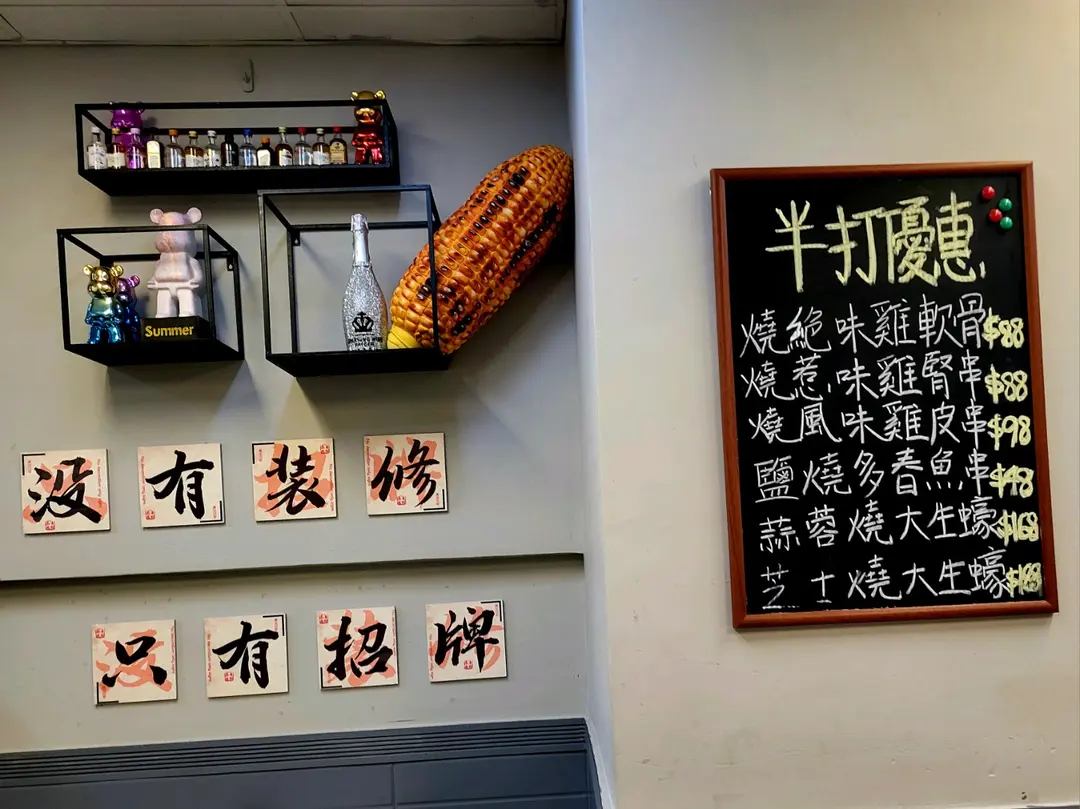 Summer
没有装修
只有招牌
半打優惠
燒絕味雞軟骨$88
燒惹味雞腎串$88
燒風味雞皮串$98
鹽燒多春魚串$148
蒜蓉燒大生蠔$168
芝士燒大生蠔